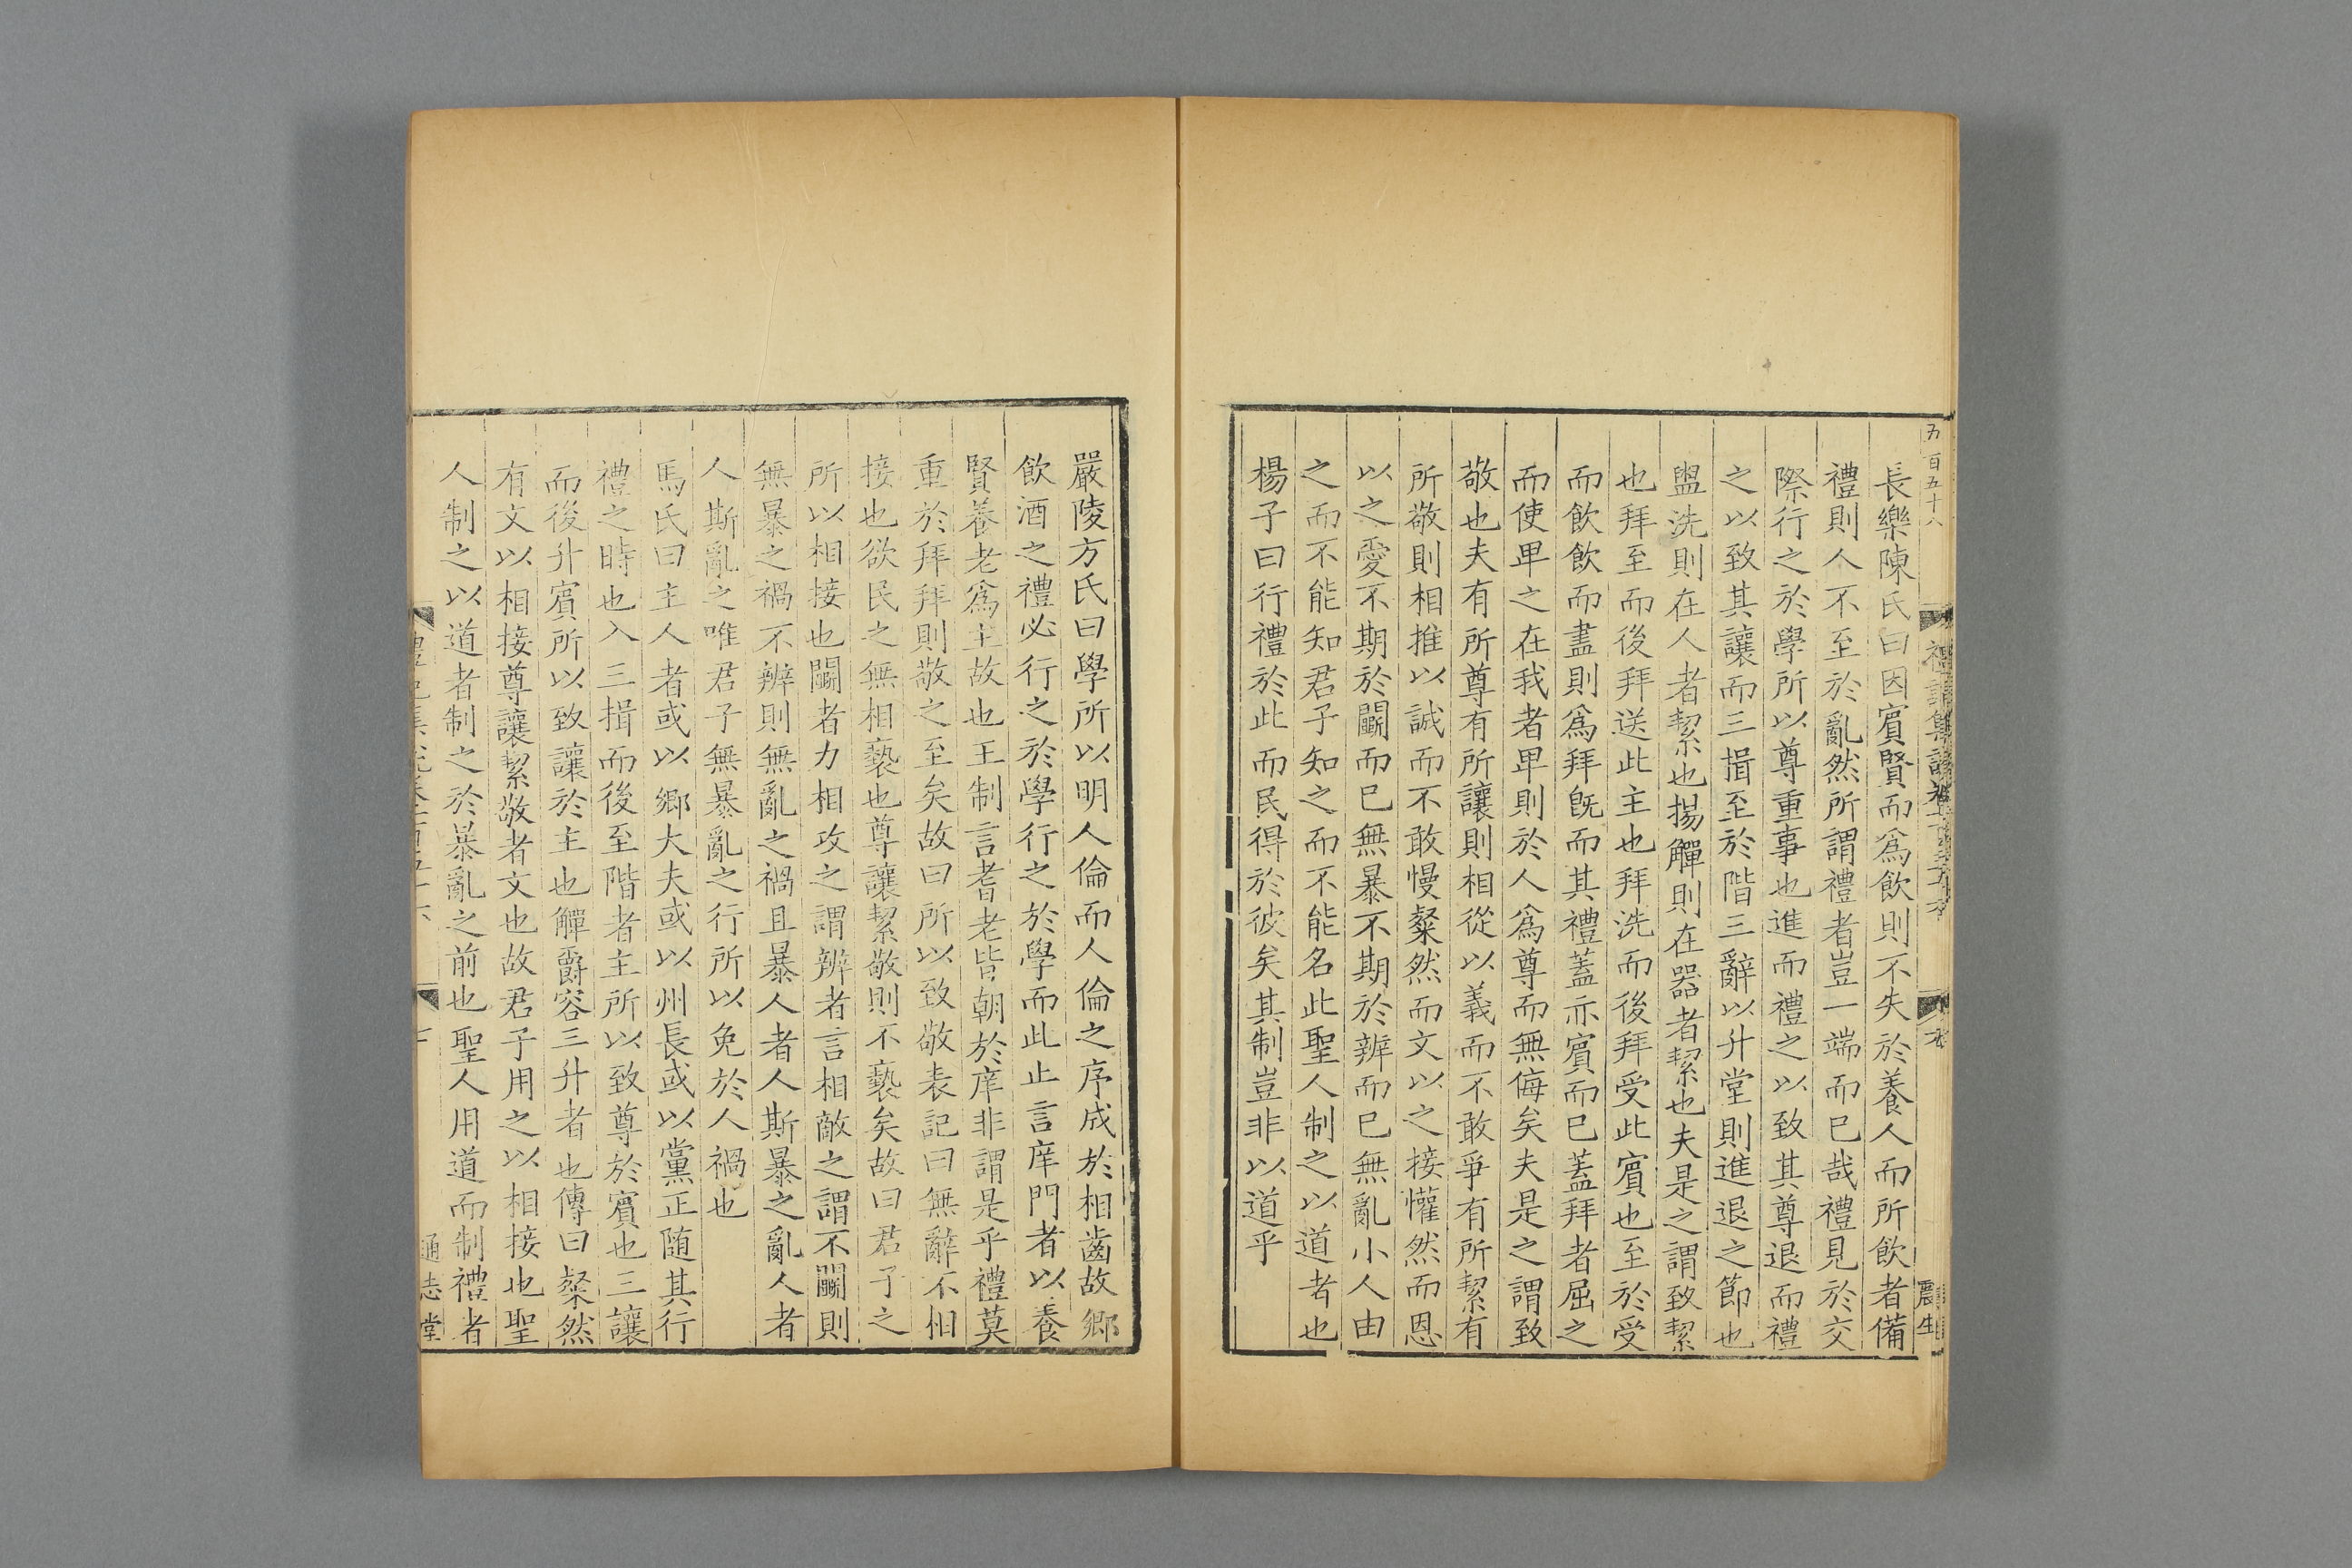 五百五十八
長樂陳氏曰因賓賢而爲飲則不失於養人而所飲者備
禮則人不至於亂然所謂禮者豈一端而已哉禮見於交
際行之於學所以尊重事也進而禮之以致其尊退而禮
之以致其讓而三揖至於階三辭以升堂則進退之節也
盥洗則在人者絜也揚觶則在器者絜也夫是之謂致絜
也拜至而後拜送此主也拜洗而後拜受此賓也至於受
而飲飲而盡則爲拜旣而其禮蓋示賓而已蓋拜者屈之
而使卑之在我者卑則於人爲尊而無侮矣夫是之謂致
敬也夫有所尊有所讓則相從以義而不敢爭有所絜有
所敬則相推以誠而不敢慢粲然而文以之接懽然而恩
以之愛不期於鬭而已無暴不期於辨而已無亂小人由
之而不能知君子知之而不能名此聖人制之以道者也
楊子曰行禮於此而民得於彼矣其制豈非以道乎
嚴陵方氏曰學所以明人倫而人倫之序成於相齒故鄉
飲酒之禮必行之於學行之於學而此止言庠門者以養
賢養老爲主故也王制言耆老皆朝於庠非謂是乎禮莫
重於拜拜則敬之至矣故曰所以致敬表記曰無辭不相
接也欲民之無相褻也尊讓絜敬則不褻矣故曰君子之
所以相接也鬭者力相攻之謂辨者言相敵之謂不鬭則
無暴之禍不辨則無亂之禍且暴人者人斯暴之亂人者
人斯亂之唯君子無暴亂之行所以免於人禍也
馬氏曰主人者或以鄉大夫或以州長或以黨正随其行
禮之時也入三揖而後至階者主所以致尊於賓也三讓
而後升賓所以致讓於主也觶爵容三升者也傳曰粲然
有文以相接尊讓絜敬者文也故君子用之以相接也聖
人制之以道者制之於暴亂之前也聖人用道而制禮者
通志堂